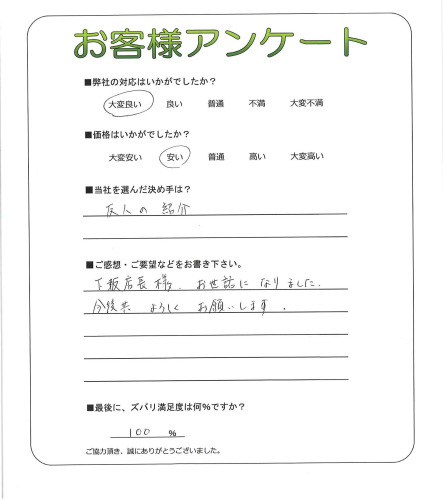 お客様アンケート
■弊社の対応はいかがでしたか？
大変良い 良い 普通 不満 大変不満
■価格はいかがでしたか？
大変安い 安い 普通 高い 大変高い
■当社を選んだ決め手は？
友人の紹介
■ご感想・ご要望などをお書き下さい。
下坂店長様、お世話になりました。
今後共 よろしく お願いします。
■最後に、ズバリ満足度は何%ですか？
100 %
ご協力頂き、誠にありがとうございました。